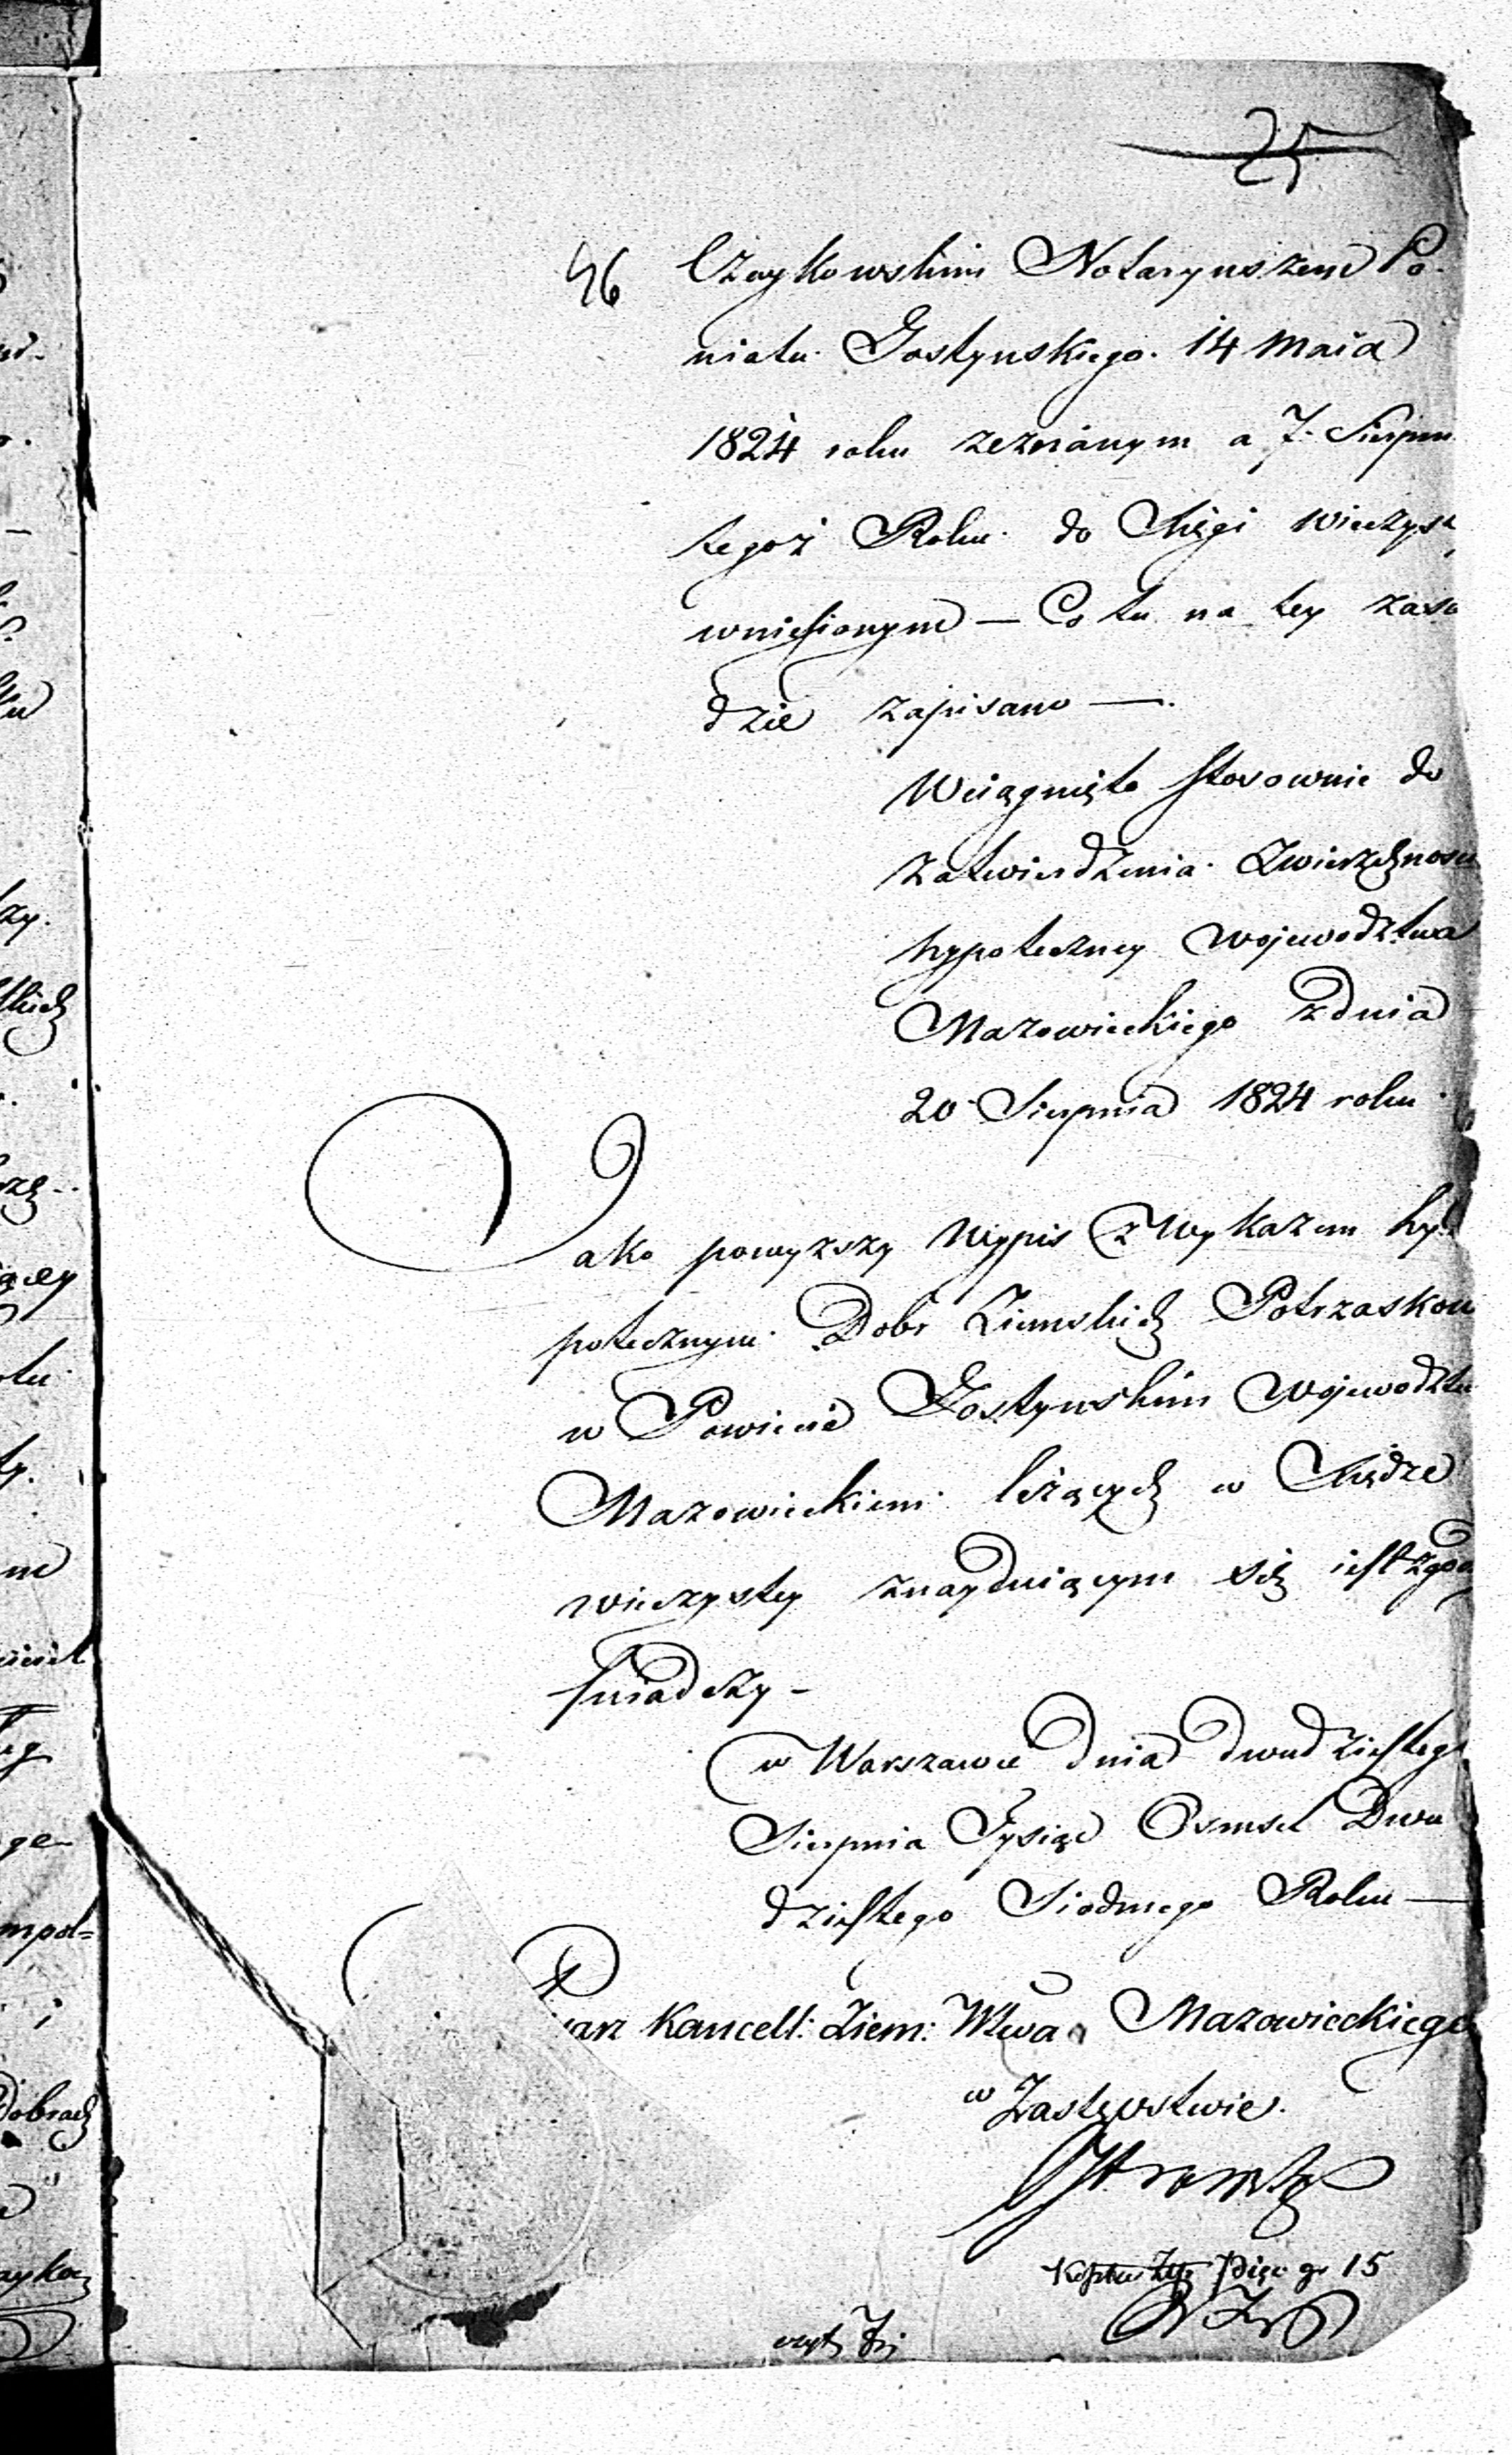 25
96 Czaykowskim Notaryuszem Po-
wiatu Gostynskiego. 14 Maia
1824 roku zeznanym a 7. Sierpn
tegoż Roku do Xięgi wieczyst
wniesionym — Co tu na tey zasa
dzie zapisano —.
Wciągnięto stosownie do
zatwierdzenia Zwierzchnosci
hypoteczney Województwa
Mazowieckiego z dnia
20 Sierpnia 1824 roku.
Jako powyzszy Wypis z Wykazem hy
potecznym Dobr Ziemskich Potrzaskow
w Powiecie Gostynskim Wojewodztw
Mazowieckiem leżących w Xiędze
wieczystey znayduiącym się iest zgod
swiadczy —
w Warszawie dnia dwudziestego
Sierpnia Tysiąc Osmset Dwu
dziestego Siodmego Roku —
arz Kancell: Ziem: Wtwa Mazowieckiego
w Zastępstwie.
gr 15